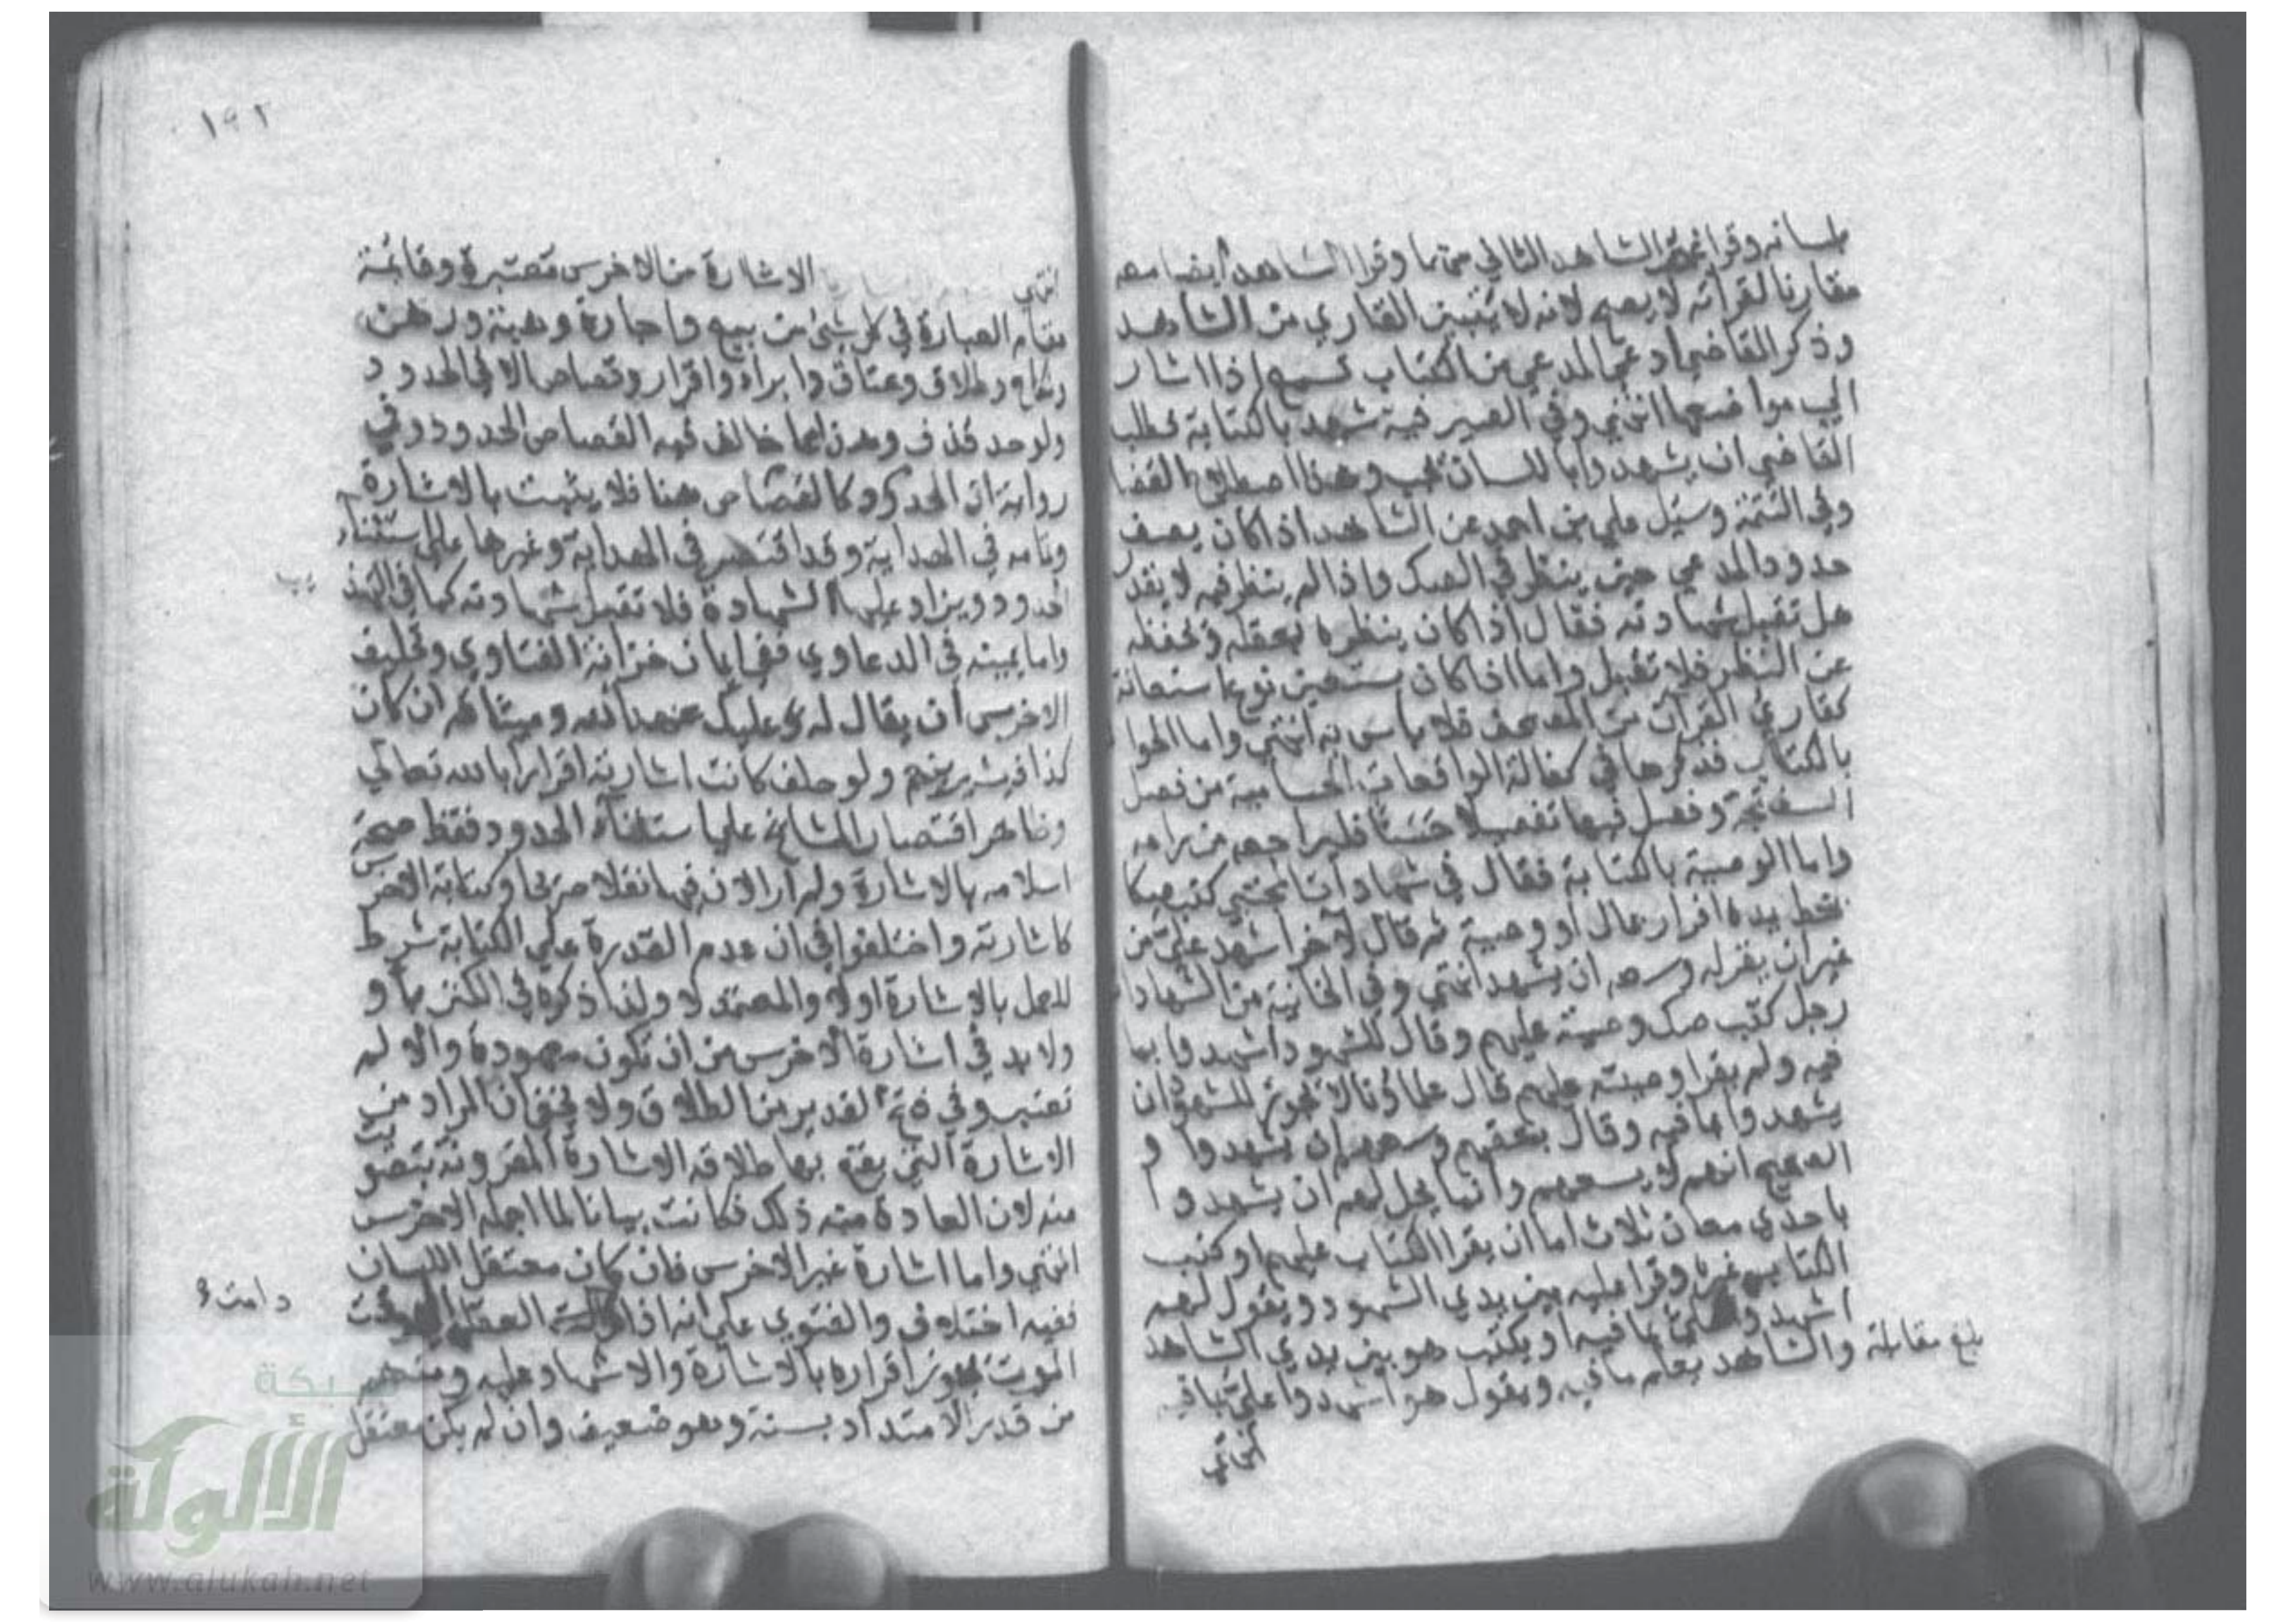 بلسانه وقرا غير الشاهد الثاني منهما وقرا الشاهد أيضا معه
مقارنا لقراته لا يصح لانه لا يتبين القاري من الشاهد
وذكر القاضي ادعى المدعي من الكتاب تسمع اذا اشار
الي مواضعها انتهي وفي الصيرفية شهد بالكتابة فطلب
القاضي ان يشهدوا باللسان يجب وهذا اصطلاح القضا
وفي اليتيمة وسيل علي بن احمد عن الشاهد اذا كان يصف
حدود المدعي حين ينظر في الصك واذا لم ينظر فيه لا يقدر
هل تقبل شهادته فقال اذا كان ينظره بعقله وتحفظه
عن النظر فلا تقبل واما اذا كان يستعين نوع استعانة
كقاري القرآن من المصحف فلا باس به انتهي واما الحوا
بالكتاب فذكرها في كفالة الواقعات الحسامية من فصل
السفتجة وفصل فيها تفصيلا حسنا فليراجعه من رامه
واما الوصية بالكتابة فقال في شهادات المجتبي كتب صكا
بخط يده اقرار بمال او وصية ثم قال لآخر اشهد علي من
غير ان يقرا له وسعه ان يشهد انتهي وفي الخانية من الشهادا
رجل كتب صك وصية عليهم وقال للشهود اشهدوا بما
فيه ولم يقرا وصيته عليهم قال علماؤنا لا يجوز للشهود ان
يشهدوا بما فيه وقال بعضهم وسعهم ان يشهدوا و
الصحيح انهم لا يسعهم وانما يحل لهم ان يشهدوا
باحدي معان ثلاث اما ان يقرا الكتاب عليهم او كتب
الكتاب غيره وقرا عليه بين يدي الشهود ويقول لهم
اشهدوا علي بما فيه او يكتب هو بين يدي الشاهد
والشاهد يعلم ما فيه ويقول هو اشهدوا علي بما فيه
انتهي
بلغ مقابلة
١٩٢
انتهي الاشارة من الاخرس معتبرة وقائمة
مقام العبارة في كل شئ من بيع واجارة وهبة ورهن
ونكاح وطلاق وعتاق وابراء واقرار وقصاص الا في الحدود
ولو حد قذف وهذا مما خالف فيه القصاص الحدود وفي
رواية ان الحدود كالقصاص هنا فلا يثبت بالاشارة
وتمامه في الهداية وقد اقتصر في الهداية وغيرها علي استثناء
الحدود ويزاد عليها الشهادة فلا تقبل شهادته كما في التهذ
يب
واما يمينه في الدعاوي ففي ايمان خزانة الفتاوي وتحليف
الاخرس أن يقال له عليك عهد الله وميثاقه ان كان
كذا فيشير بنعم ولو حلف كانت اشارته اقرارا بالله تعالي
وظاهر اقتصار المشايخ علي استثناء الحدود فقط صحة
اسلامه بالاشارة ولم ار الان فيها نقلا صريحا وكتابة الاخرس
كاشارته واختلفوا في ان عدم القدرة علي الكتابة شرط
للعمل بالاشارة اولا والمعتمد لا ولذا ذكره في الكنز باو
ولا بد في اشارة الاخرس من ان تكون معهودة والا لم
تعتبر وفي فتح القدير من الطلاق ولا يخفي ان المراد من
الاشارة التي يقع بها طلاقه الاشارة المقرونة بتصويت
منه لان العادة منه ذلك فكانت بيانا لما اجمله الاخرس
انتهي واما اشارة غير الاخرس فان كان معتقل اللسان
ففيه اختلاف والفتوي علي انه اذا العقلة الي وقت
دامت
الموت يجوز اقراره بالاشارة والاشهاد عليه ومنهم
من قدر الامتداد بسنة وهو ضعيف وان لم يكن معتقل
شبكة
الألوكة
www.alukah.net